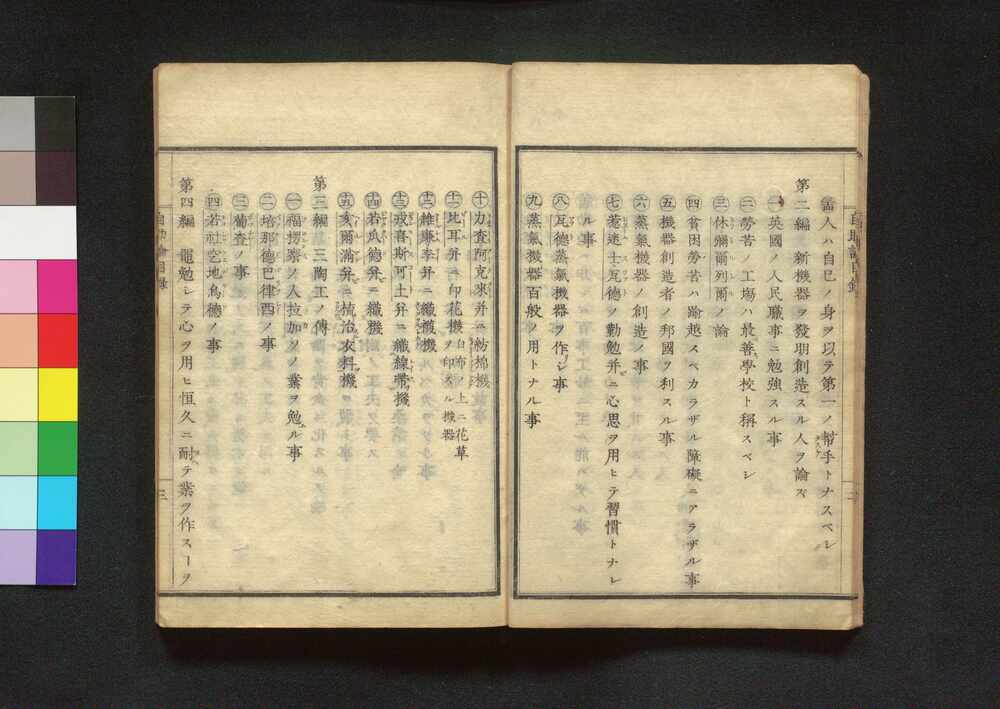 ㊂人ハ自己ノ身ヲ以テ第一ノ幇手トナスベシ
第二編 新機器ヲ發明創造スル人ヲ論ズ
㊀英國ノ人民職事ニ勉強スル事
㊁勞苦ノ工塲ハ最善學校ト稱スベシ
㊂休爾列爾ノ論
㊃貧困勞苦ハ踰越スベカラザル障礙ニアラザル事
㊄機器創造者ノ邦國ヲ利スル事
㊅蒸氣機器ノ創造ノ事
㊆惹迷士瓦德ノ勤勉并ニ心思ヲ用ヒテ習慣トナレ
ル事
㊇瓦德蒸氣機器ヲ作シ事
㊈蒸氣機器百般ノ用トナル事
㊉力查阿克來并ニ紡棉機
比耳并ニ印花機 白布ノ上ニ花草ヲ印スル機器
維廉李并ニ織襪機
義喜斯可土并ニ織線帶機
若瓜德并ニ織機
亥爾滿并ニ梳治衣料機
第三編 三陶工ノ傳
㊀福拐察ノ人拉加ソノ業ヲ勉ル事
㊁培那德巴律西ノ事
㊂葡查ノ事
㊃若社空地烏德ノ事
第四編 黽勉シテ心ヲ用ヒ恒久ニ耐テ業ヲ作スヿヲ
自助論目録
三